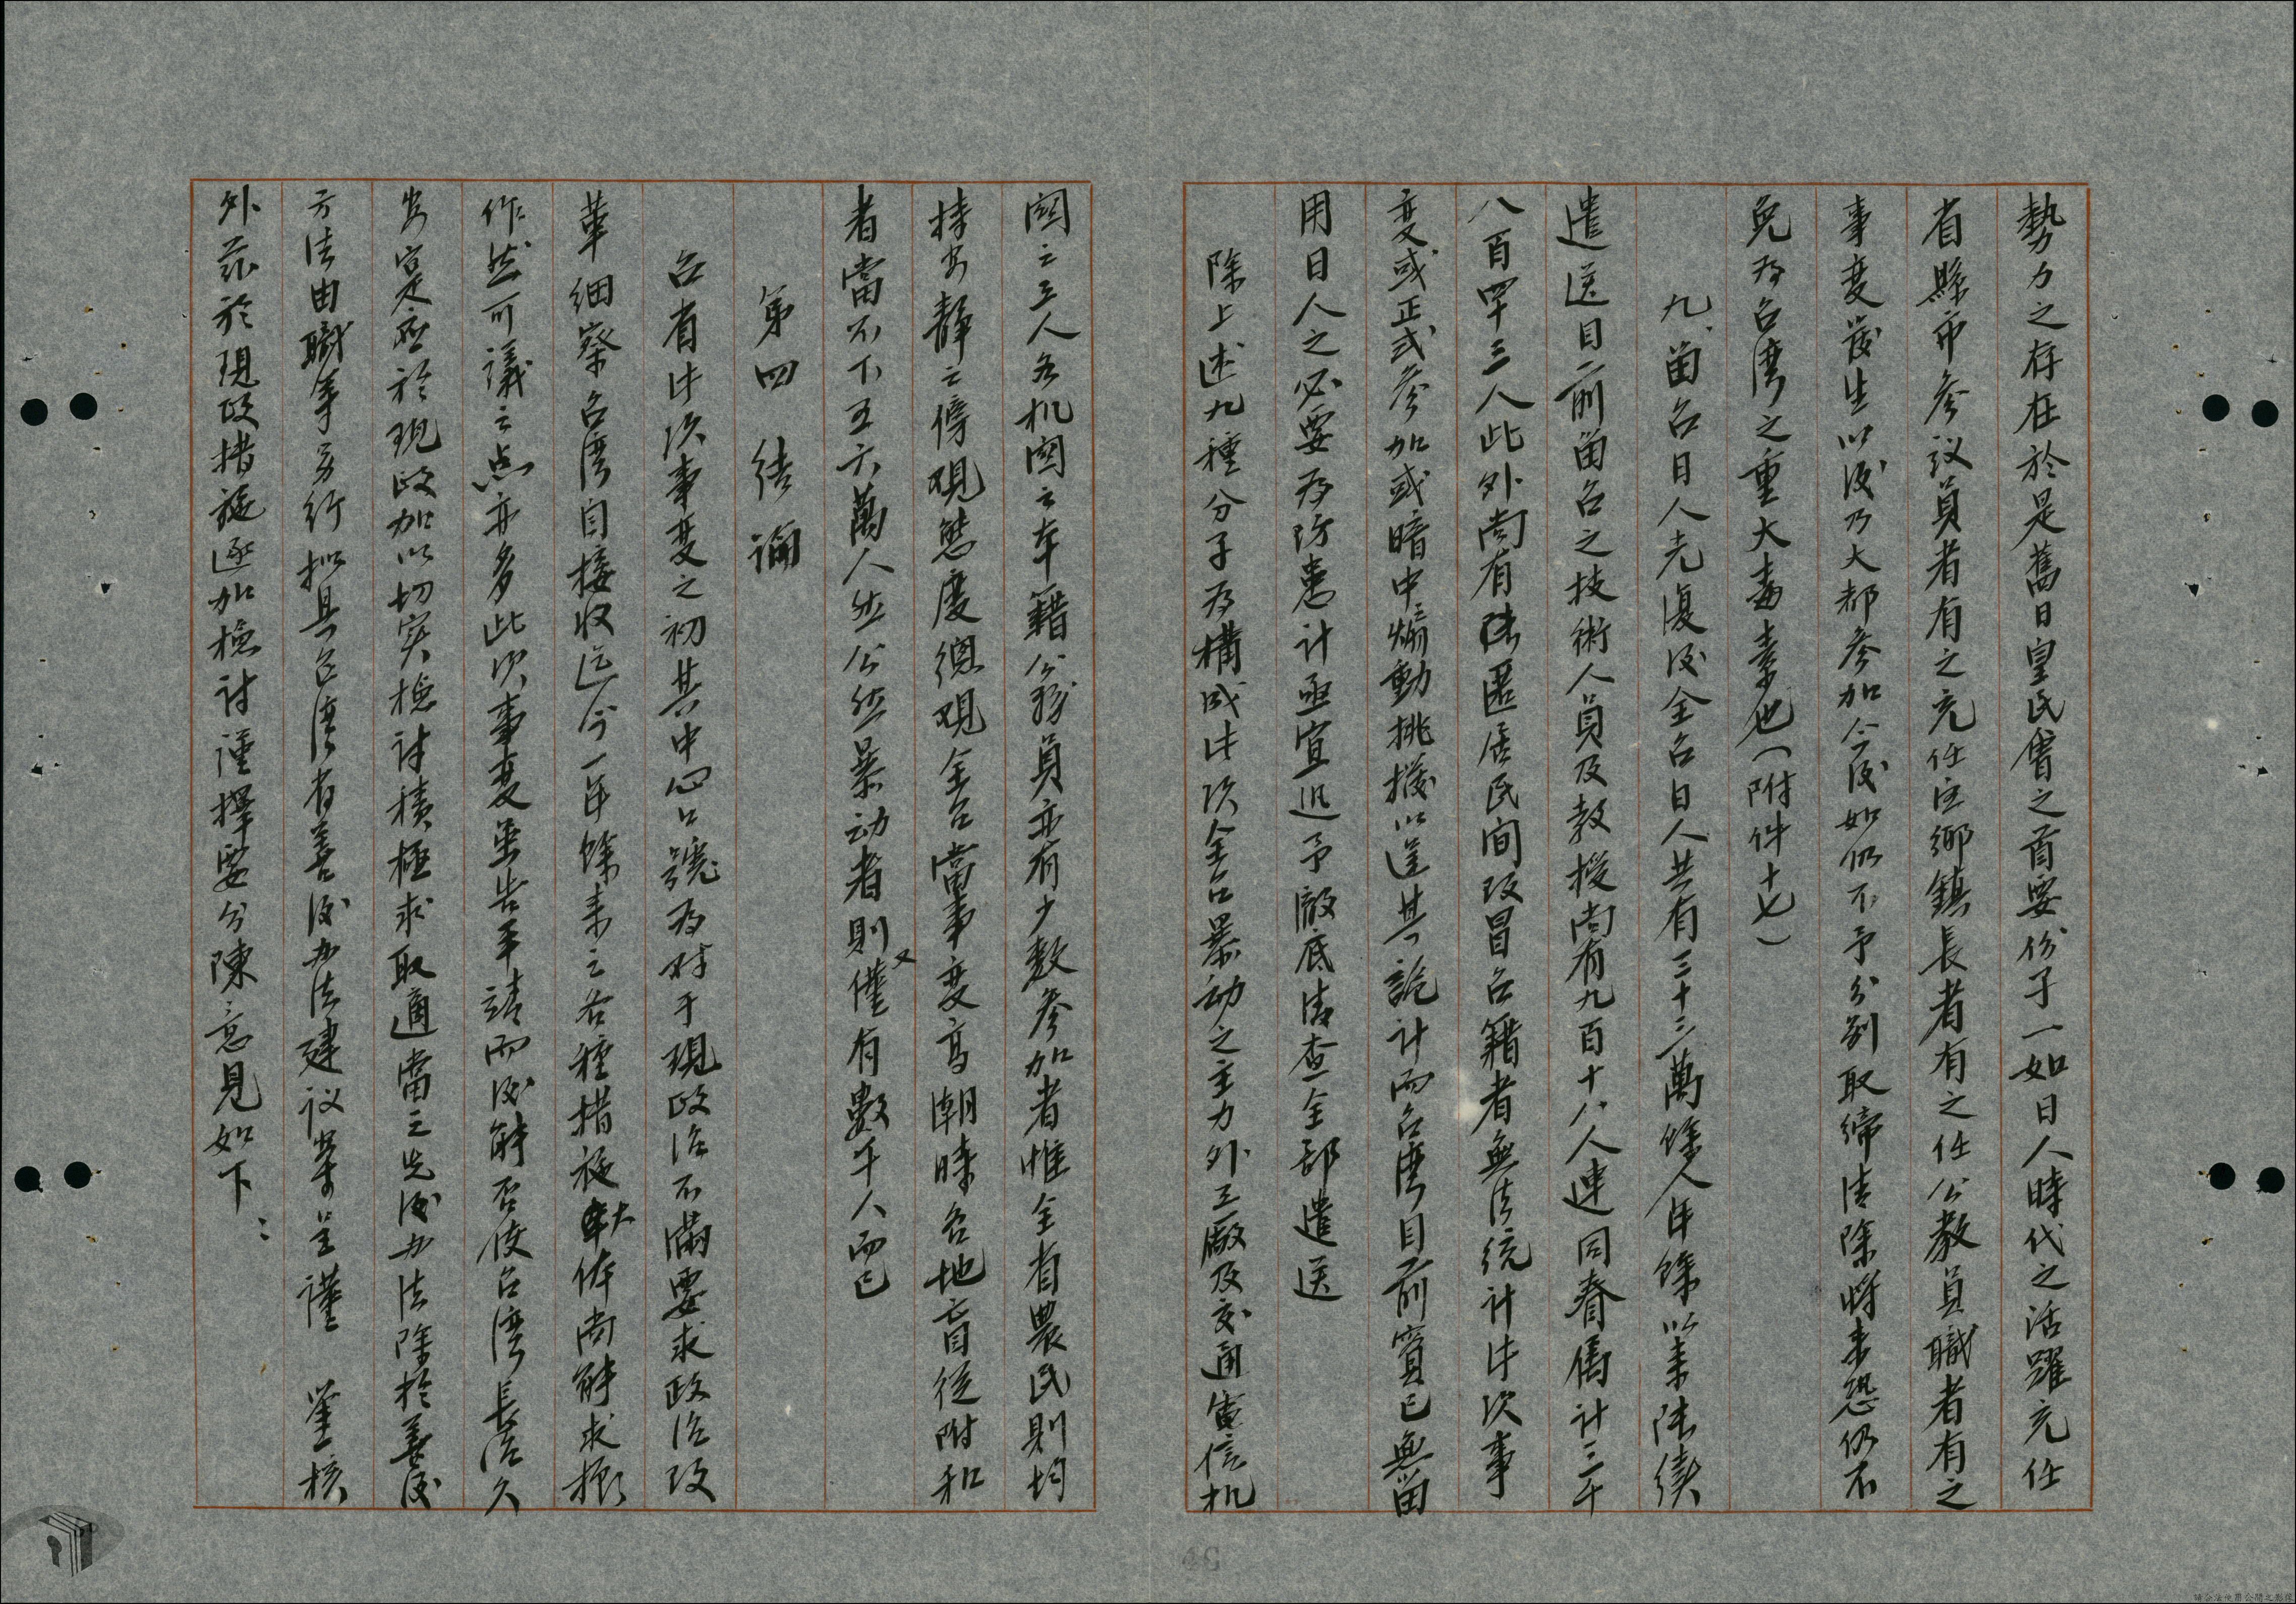 勢力之存在於是舊日皇民會之首要份子一如日人時代之活躍充任
省縣市參议員者有之充任区鄉鎮長者有之任公教員職者有之
事变發生以后乃大都參加今后如仍不予分别取締清除将来恐仍不
免为台湾之重大毒素也（附件十七）
九、留台日人光復后全台日人共有三十三萬餘人年餘以来陆續
遣送目前留台之技術人員及教授尚有九百十八人連同眷属計三千
八百四十三人此外尚有隐匿居民间改冒台籍者無法统计此次事
变或正式参加或暗中煽動挑撥以逞其詭计而台湾目前實已無留
用日人之必要为防患计亟宜迅予澈底清查全部遣送
除上述九種分子为構成此次全台暴动之主力外工廠及交通電信机
関之工人各机関之本籍公務員亦有少数参加者惟全省農民則均
持安靜之傍观態度總观全台當事变高潮時各地盲從附和
者當不下五六萬人然公然暴动者則僅有數千人而已
第四 结論
台省此次事变之初其中心口號为对于現政治不滿要求政治改
革细察台湾自接收迄今一年餘来之各種措施大体尚能求振
作然可議之点亦多此次事变虽告平靖而后能否使台湾長治久
安寔应於現政加以切实檢討積極求取適當之先后办法除於善后
方法由職等另行拟具台湾省善后办法建议案呈謹 鉴核
外茲於現政措施逐加檢討謹擇要分陳意見如下：